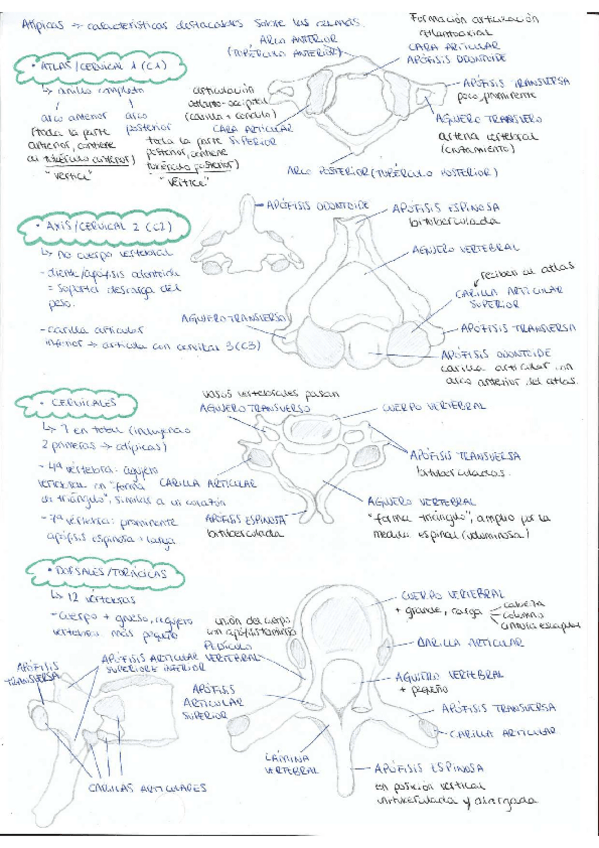 Atípicas → características destacables sobre las demás.
• ATLAS/CERVICAL 1 (C1)
↳ anillo completo
arco anterior
(toda la parte
anterior, contiene
al tubérculo anterior)
"vértice"
arco
posterior
toda la parte
posterior, contiene
tubérculo posterior)
"vértice"
articulación
atlanto-occipital
(carilla + cóndilo)
CARA ARTICULAR
SUPERIOR
ARCO ANTERIOR
(TUBÉRCULO ANTERIOR)
Formación articulación
atlantoaxial
CARA ARTICULAR
APÓFISIS ODONTOIDE
APÓFISIS TRANSVERSA
poco prominente
AGUJERO TRANSVERSO
arteria vertebral
ARCO POSTERIOR (TUBÉRCULO POSTERIOR)
• AXIS/CERVICAL 2 (C2)
↳ No cuerpo vertebral
- diente/apófisis odontoide
= soporta descarga del
peso.
- carilla articular
inferior → articula con cervical 3 (C3)
APÓFISIS ODONTOIDE
APÓFISIS ESPINOSA
bituberculada
AGUJERO VERTEBRAL
reciben al atlas
CARILLA ARTICULAR
SUPERIOR
AGUJERO TRANSVERSO
APÓFISIS TRANSVERSA
APÓFISIS ODONTOIDE
carilla articular con
arco anterior del atlas.
• CERVICALES
↳ 7 en total (incluyendo
2 primeras → atípicas)
- 4ª vértebra: agujero
vertebral en "forma
de triángulo", similar a un corazón
- 7ª vértebra: prominente
apófisis espinosa + larga
vasos vertebrales pasan
AGUJERO TRANSVERSO
CUERPO VERTEBRAL
CARILLA ARTICULAR
APÓFISIS TRANSVERSA
bituberculadas.
APÓFISIS ESPINOSA
bituberculada
AGUJERO VERTEBRAL
"forma triángulo", amplio por la
médula espinal (voluminosa)
• DORSALES/TORÁCICAS
↳ 12 vértebras
- cuerpo + grueso, agujero
vertebral más pequeño
unión del cuerpo
con apófisis transversa
PEDÍCULO
VERTEBRAL
CUERPO VERTEBRAL
+ grande, carga
cabeza
columna
cintura escapular
CARILLA ARTICULAR
AGUJERO VERTEBRAL
+ pequeño
APÓFISIS TRANSVERSA
CARILLA ARTICULAR
APÓFISIS
TRANSVERSA
APÓFISIS ARTICULAR
SUPERIOR E INFERIOR
APÓFISIS
ARTICULAR
SUPERIOR
LÁMINA
VERTEBRAL
CARILLAS ARTICULARES
APÓFISIS ESPINOSA
en posición vertical
unituberculada y alargada